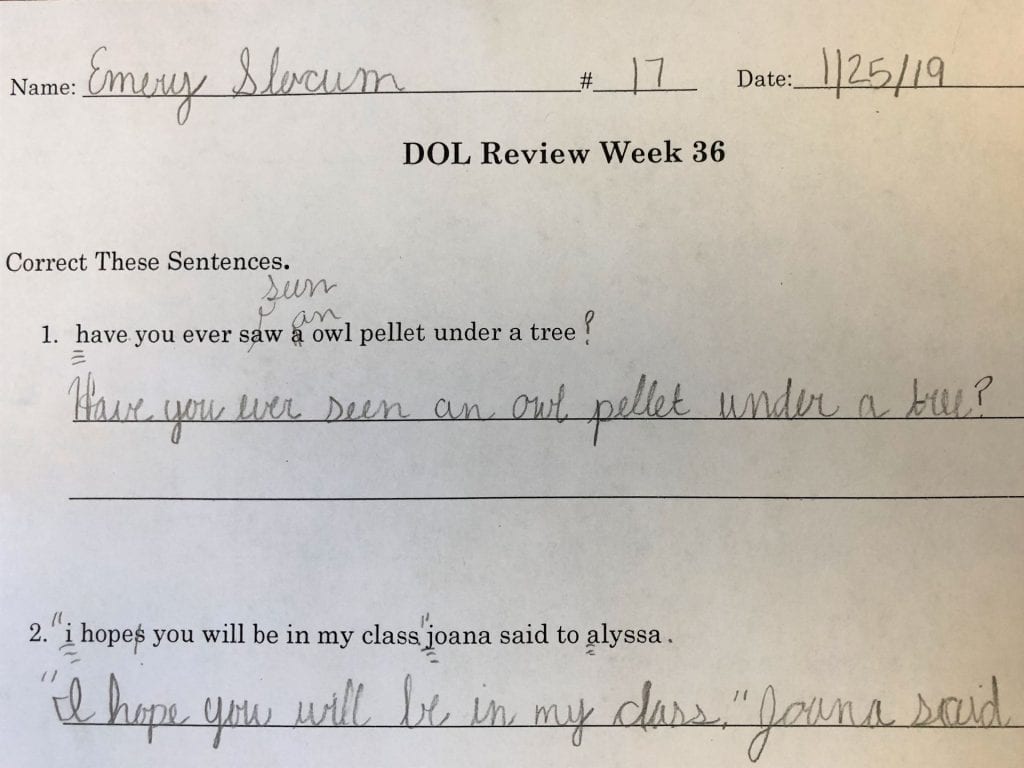 Name: Emery Slocum # 17 Date: 1/25/19
DOL Review Week 36
Correct These Sentences.
seen
an
1. have you ever saw a owl pellet under a tree ?
Have you ever seen an owl pellet under a tree?
2. "i hopes you will be in my class," joana said to alyssa .
"I hope you will be in my class," Joana said